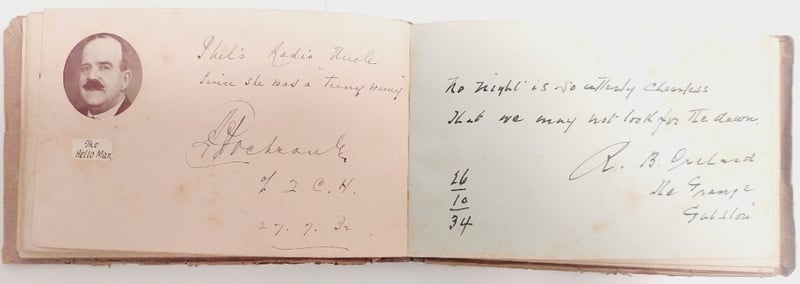 The
Hello Man.
Phil's Radio Uncle
Since she was a "teeny weeny"
Cochrane
of 2 C.H.
27. 7. 34.
No night is so utterly cheerless
That we may not look for the dawn.
R. B. Orchard
The Grange
26
10
34